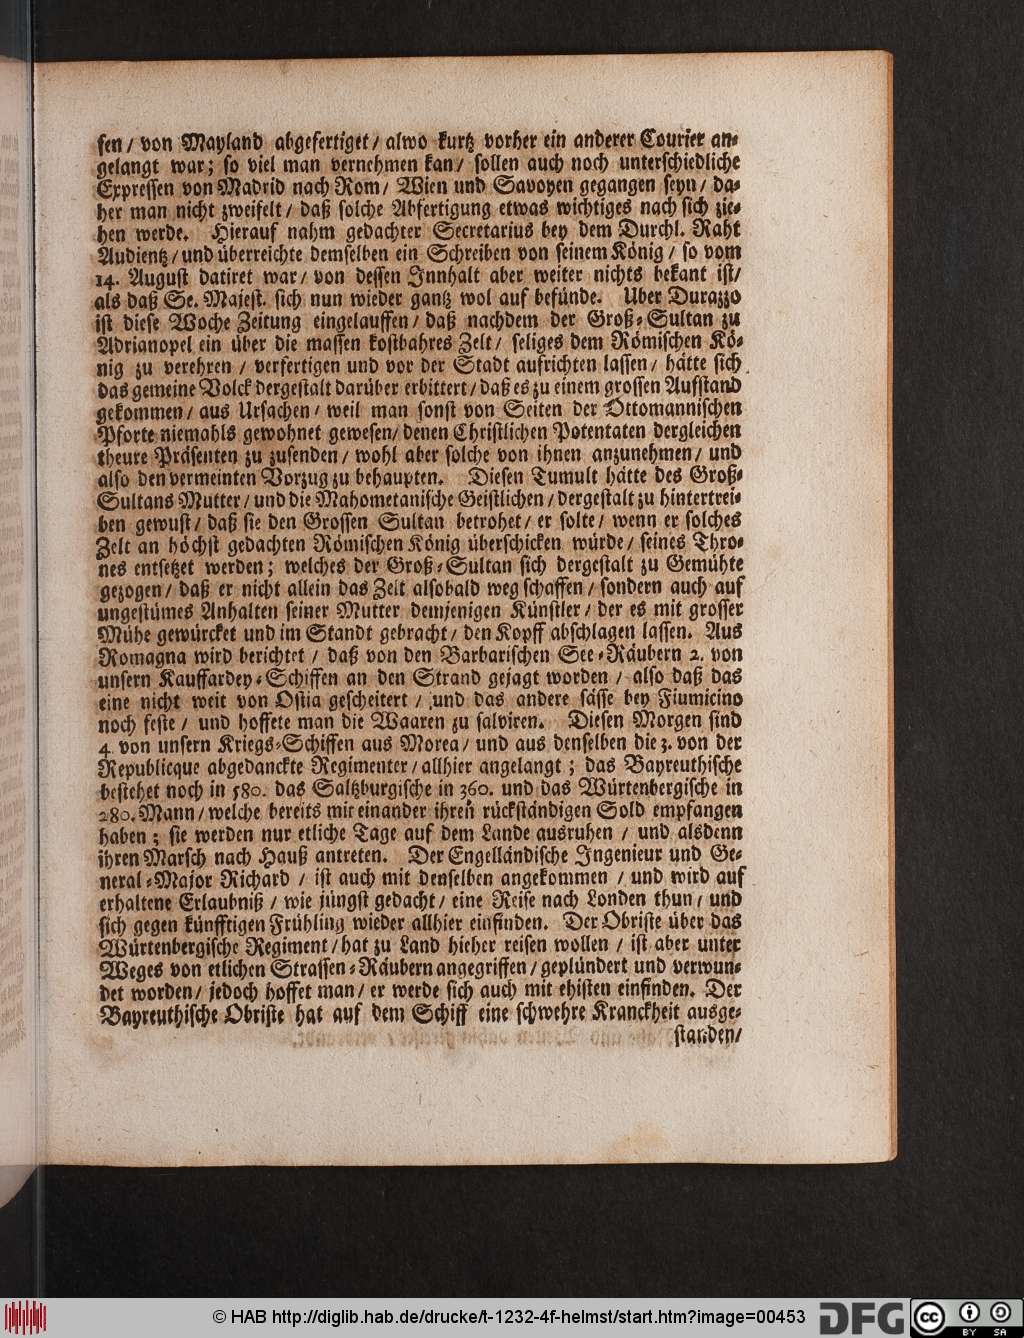 sen / von Mayland abgefertiget / alwo kurtz vorher ein anderer Courier an-
gelangt war; so viel man vernehmen kan / sollen auch noch unterschiedliche
Expressen von Madrid nach Rom / Wien und Savoyen gegangen seyn / da-
her man nicht zweifelt / daß solche Abfertigung etwas wichtiges nach sich zie-
hen werde. Hierauf nahm gedachter Secretarius bey dem Durchl. Raht
Audientz / und überreichte demselben ein Schreiben von seinem König / so vom
14. August datiret war / von dessen Innhalt aber weiter nichts bekant ist /
als daß Se. Majest. sich nun wieder gantz wol auf befünde. Uber Durazzo
ist diese Woche Zeitung eingelauffen / daß nachdem der Groß-Sultan zu
Adrianopel ein über die massen kostbahres Zelt / seliges dem Römischen Kö-
nig zu verehren / verfertigen und vor der Stadt aufrichten lassen / hätte sich
das gemeine Volck dergestalt darüber erbittert / daß es zu einem grossen Aufstand
gekommen / aus Ursachen / weil man sonst von Seiten der Ottomannischen
Pforte niemahls gewohnet gewesen / denen Christlichen Potentaten dergleichen
theure Präsenten zu zusenden / wohl aber solche von ihnen anzunehmen / und
also den vermeinten Vorzug zu behaupten. Diesen Tumult hätte des Groß-
Sultans Mutter / und die Mahometanische Geistlichen / dergestalt zu hintertrei-
ben gewust / daß sie den Grossen Sultan betrohet / er solte / wenn er solches
Zelt an höchst gedachten Römischen König überschicken würde / seines Thro-
nes entsetzet werden; welches der Groß-Sultan sich dergestalt zu Gemühte
gezogen / daß er nicht allein das Zelt alsobald weg schaffen / sondern auch auf
ungestümes Anhalten seiner Mutter demjenigen Künstler / der es mit grosser
Mühe gewürcket und im Standt gebracht / den Kopff abschlagen lassen. Aus
Romagna wird berichtet / daß von den Barbarischen See-Räubern 2. von
unsern Kauffardey-Schiffen an den Strand gejagt worden / also daß das
eine nicht weit von Ostia gescheitert / und das andere sässe bey Fiumicino
noch feste / und hoffete man die Waaren zu salviren. Diesen Morgen sind
4. von unsern Kriegs-Schiffen aus Morea / und aus denselben die 3. von der
Republicque abgedanckte Regimenter / allhier angelangt; das Bayreuthische
bestehet noch in 580. das Saltzburgische in 360. und das Würtenbergische in
280. Mann / welche bereits mit einander ihren rückständigen Sold empfangen
haben; sie werden nur etliche Tage auf dem Lande ausruhen / und alsdenn
ihren Marsch nach Hauß antreten. Der Engelländische Ingenieur und Ge-
neral-Major Richard / ist auch mit denselben angekommen / und wird auf
erhaltene Erlaubniß / wie jüngst gedacht / eine Reise nach Londen thun / und
sich gegen künfftigen Frühling wieder allhier einfinden. Der Obriste über das
Würtenbergische Regiment / hat zu Land hieher reisen wollen / ist aber unter
Weges von etlichen Strassen-Räubern angegriffen / geplündert und verwun-
det worden / jedoch hoffet man / er werde sich auch mit ehisten einfinden. Der
Bayreuthische Obriste hat auf dem Schiff eine schwehre Kranckheit ausge-
standen /
© HAB http://diglib.hab.de/drucke/t-1232-4f-helmst/start.htm?image=00453
DFG
cc BY SA